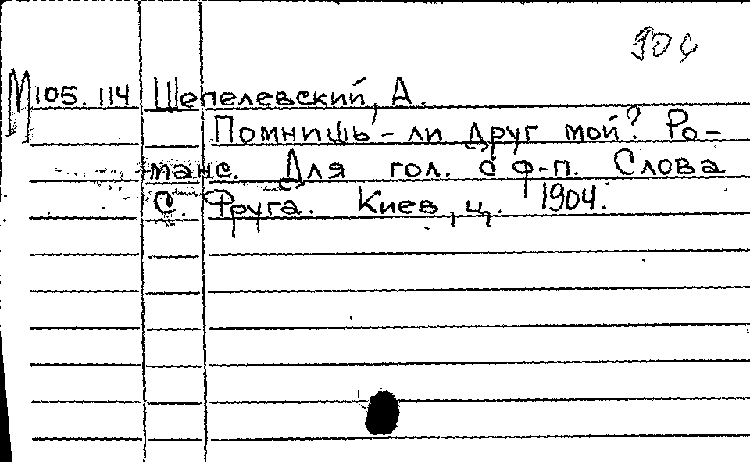 904
М105.114 Шепелевский, А.
Помнишь-ли друг мой? Ро-
манс. Для гол. с ф-п. Слова
С. Фруга. Киев, ц. 1904.